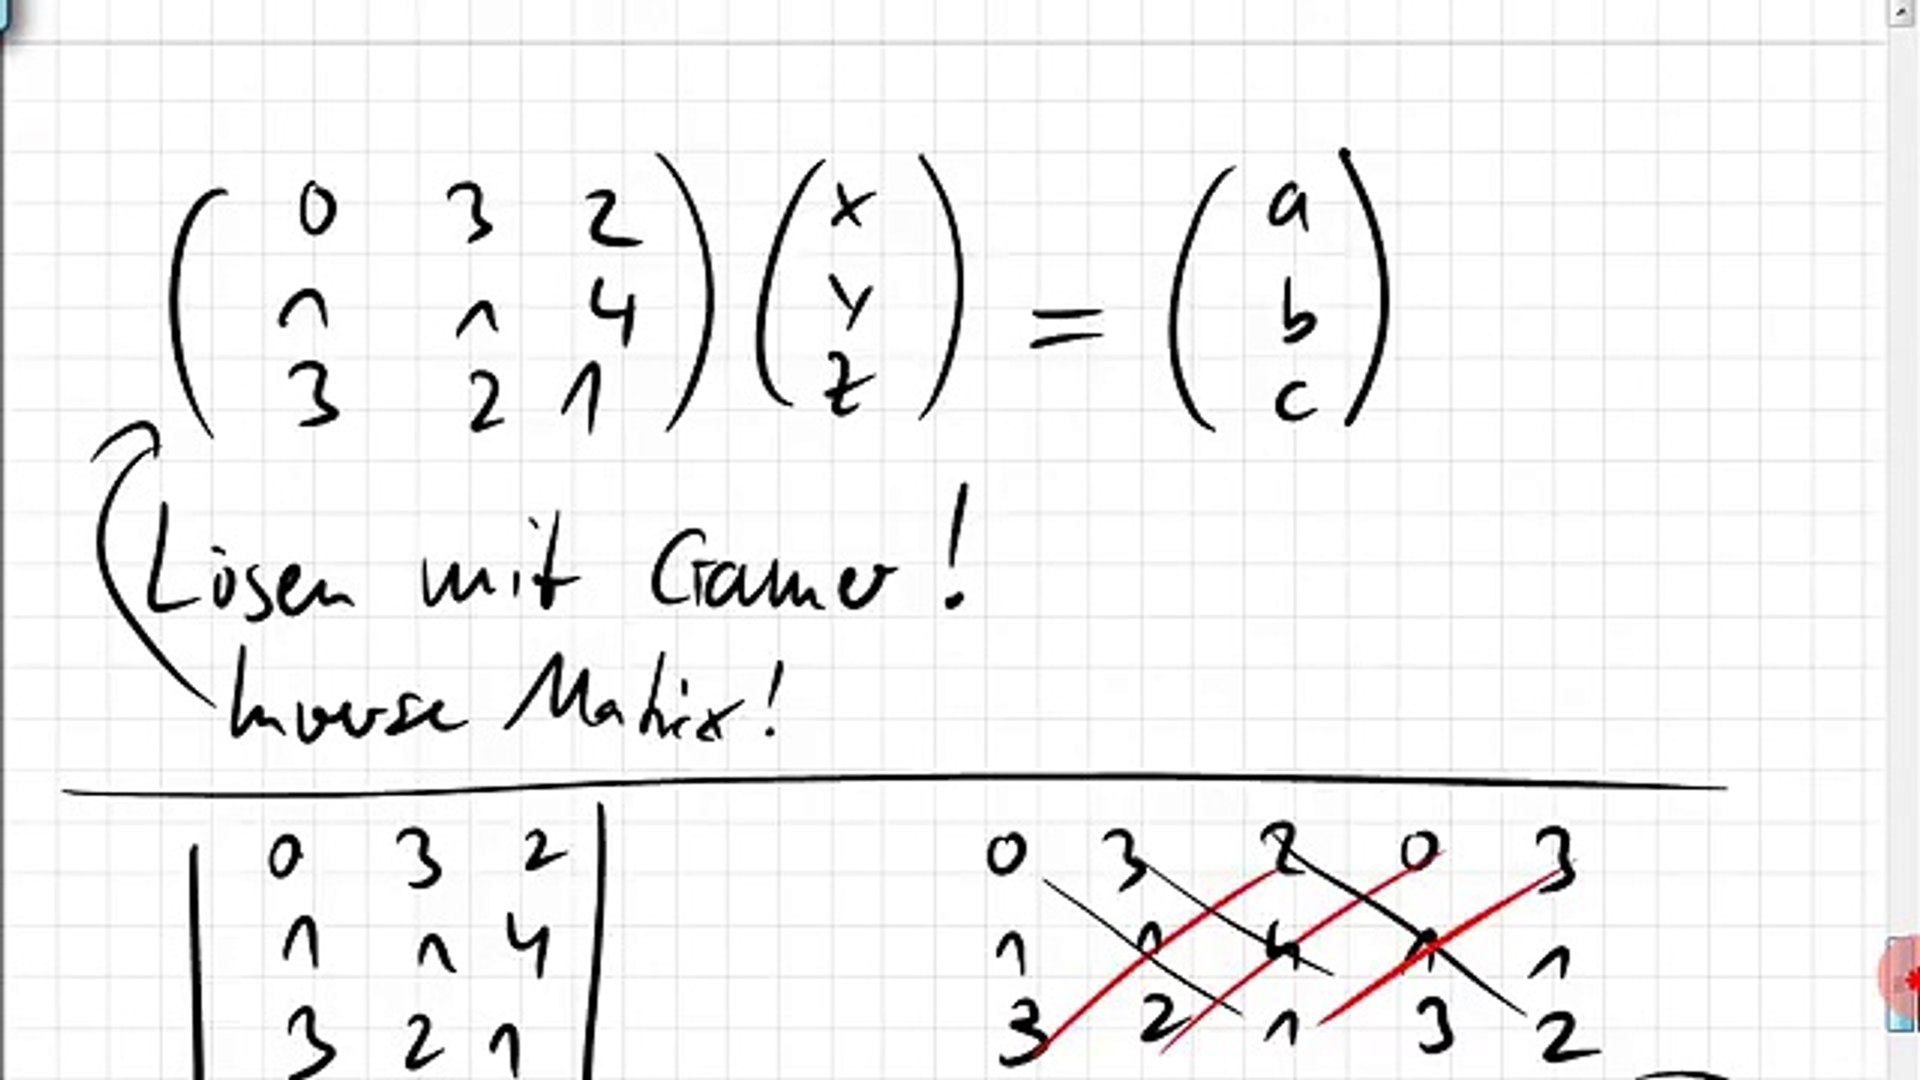 0 3 2 x = a
1 1 4 y b
3 2 1 z c
Lösen mit Cramer!
Inverse Matrix!
0 3 2
1 1 4
3 2 1
0 3 2 0 3
1 1 4 1 1
3 2 1 3 2